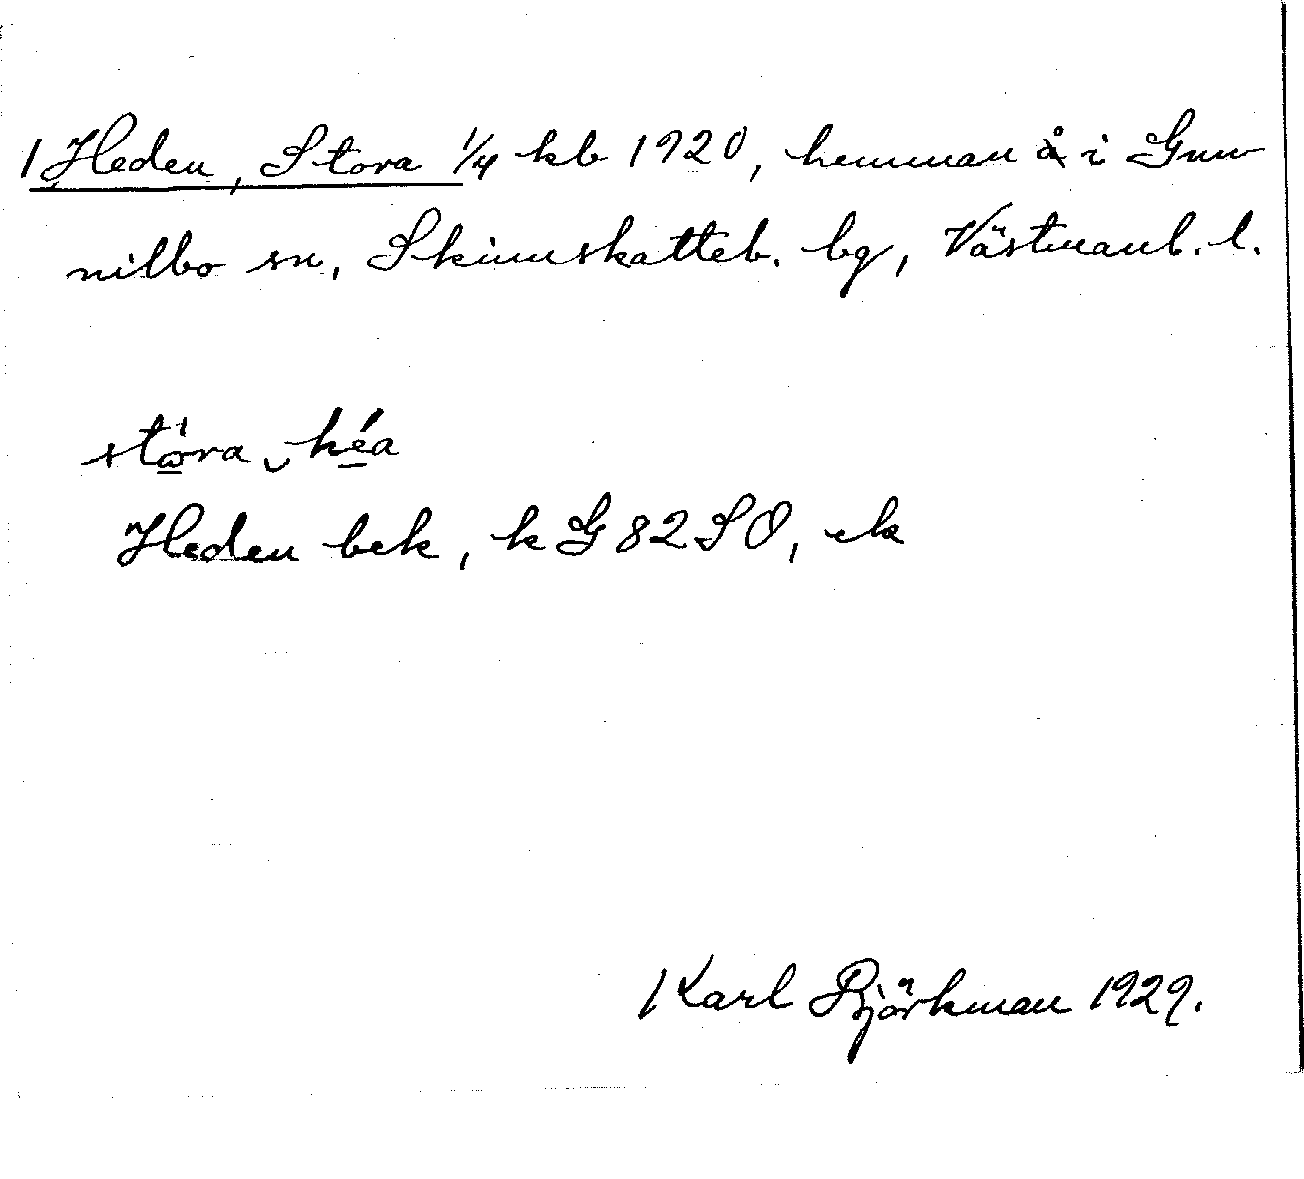 1 Heden, Stora 1/4 kb 1920, hemman å i Gun-
nilbo sn, Skinnskatteb. bg, Västmanl. l.
stóra ‿ héa
Heden bek, k G 82 SO, ek
Karl Björkman 1929.